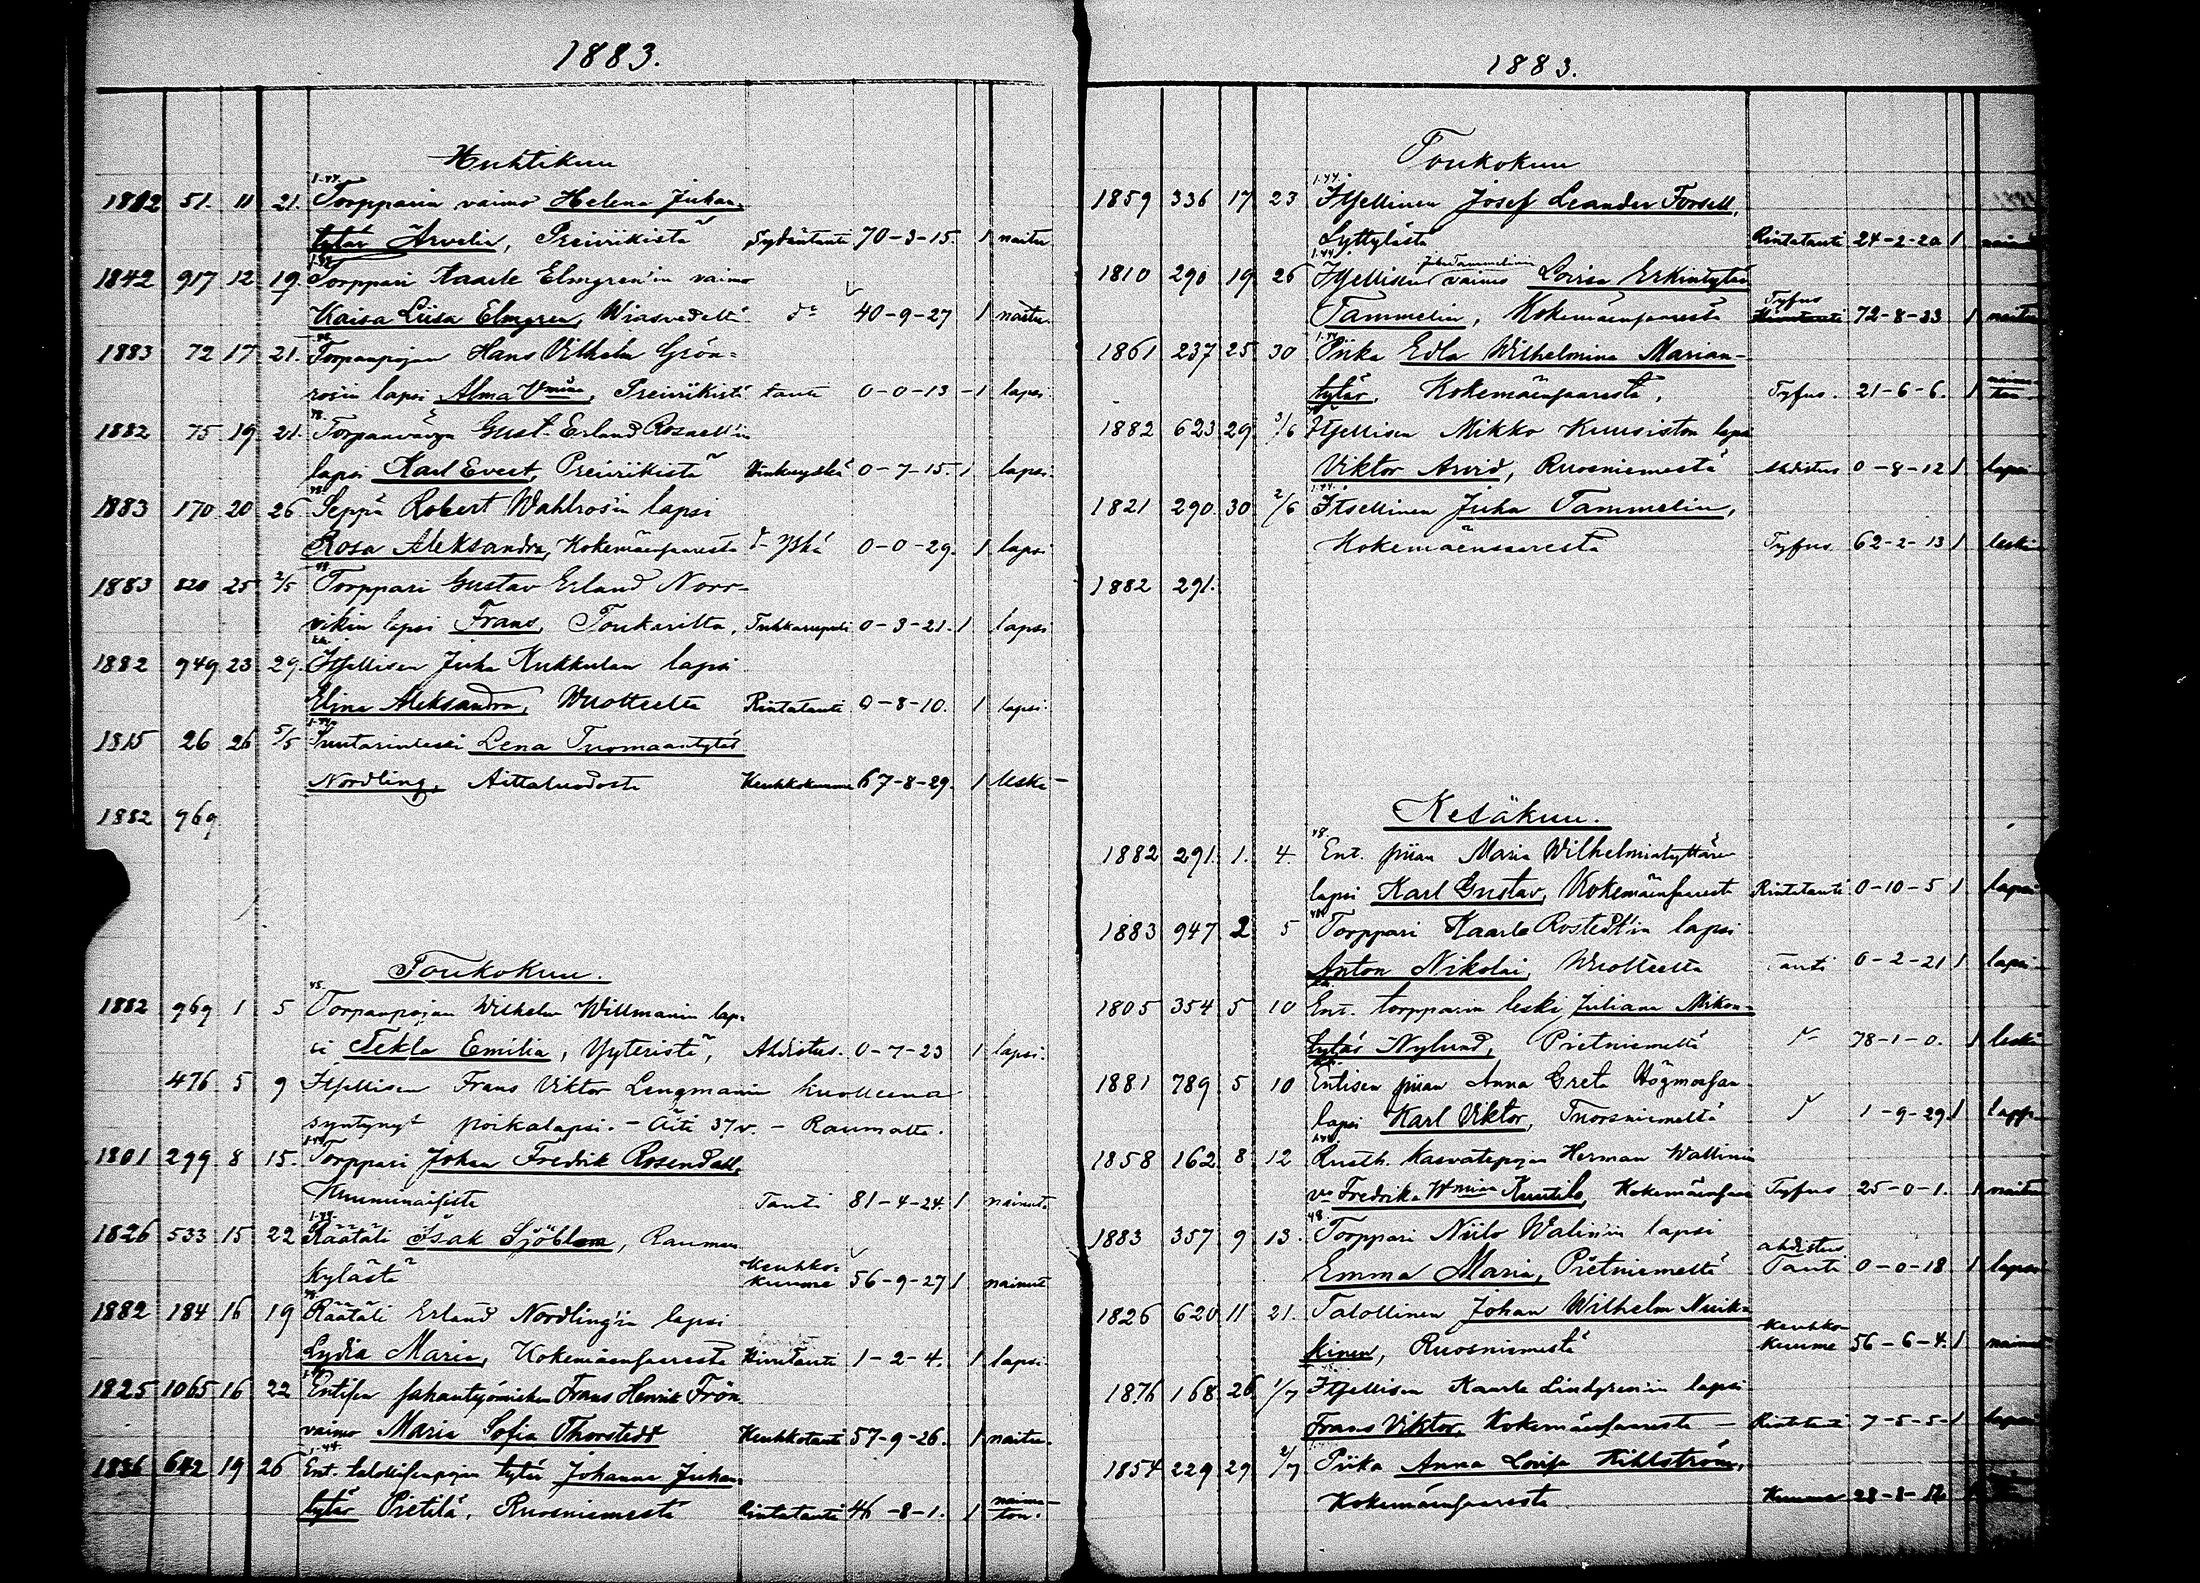 1883.
Huhtikuu
1812 51. 11 21. Torpparin vaimo Helena Juhan-
tytär Arvelin, Preiviikistä Sydäntauti 70-3-15. 1 naitu
1842 917 12 19. Torppari Kaarle Elmgren'in vaimo
Kaisa Liisa Elmgren, Wiasvedeltä do 40-9-27 1 naitu.
1883 72 17 21. Torpanpojan Hans Vilhelm Grön-
rosin lapsi Alma Vmina, Preiviikistä tauti 0-0-13 1 lapsi
1882 75 19 21. Torpanvävyn Gust. Erland Rosnell'in
lapsi Karl Evert, Preiviikistä Hinkuyskä 0-7-15. 1 lapsi
1883 170 20 26 Seppä Robert Wahlrosin lapsi
Rosa Aleksandra, Kokemäensaaresta d- yskä 0-0-29. 1 lapsi
1883 820 25 2/5 Torppari Gustav Erland Norr-
vikin lapsi Frans, Toukarilta, Tuhkarupuli 0-3-21. 1 lapsi
1882 949 23 29. Itsellisen Juha Kukkulan lapsi
Elina Aleksandra, Wuolteelta Rintatauti 0-8-10. 1 lapsi
1815 26 26 5/5 Suutarinleski Lena Tuomaantytär
Nordling, Aittaluodosta Keuhkokuume 67-8-29. 1 leski
1882 969
Toukokuu.
1882 969 1 5 Torpanpojan Wilhelm Willmanin lap-
si Tekla Emilia, Yyteristä, Ahdistus. 0-7-23 1 lapsi.
476 5 9 Itsellisen Frans Viktor Lengmanin kuolleena
syntynyt poikalapsi. - Äiti 37 v. - Raumalta.
1801 299 8 15. Torppari Johan Fredrik Rosendall,
Kumnaisista Tauti 81-4-24. 1 nainut.
1826 533 15 22 Räätäli Isak Sjöblom, Rauman
kylästä Keuhko-kuume 56-9-27 1 nainut
1882 184 16 19 Räätäli Erland Nordling'in lapsi
Lydia Maria, Kokemäensaaresta 1-2-4. 1 lapsi
1825 1065 16 22 Entisen sahantyömiehen Frans Henrik Frön
vaimo Maria Sofia Thorstedt Keuhkotauti 57-9-26. 1 naitu.
1836 642 19 26 Ent. talollisenpojan tytär Johanna Juhan-
tytär Pietilä, Ruosniemestä Rintatauti 46-8-1. 1 naima-ton.
1883.
Toukokuu
1859 336 17 23 Itsellinen Josef Leander Forsell,
Lyttylästä Rintatauti 24-2-20 1
1810 290 19 26 Itsellisen Juha Tammelinin vaimo Lovisa Erkintytär
Tammelin, Kokemäensaaresta Tyfus 72-8-23 1 naitu
1861 237 25 30 Piika Edla Wilhelmina Marian-
tytär, Kokemäensaaresta, Tyfus. 21-6-6. 1
1882 623 29 3/6 Itsellisen Mikko Kuusiston lapsi
Viktor Arvid, Ruosniemestä Ahdistus 0-8-12 1 lapsi
1821 290 30 2/6 Itsellinen Juha Tammelin,
Kokemäensaaresta Tyfus 62-2-13 1 leski
1882 291.
Kesäkuu.
1882 291. 1. 4. Ent. piian Maria Wilhelmintyttären
lapsi Karl Gustav, Kokemäensaaresta Rintatauti 0-10-5 1 lapsi
1883 947 2 5 Torppari Kaarle Rostedt'in lapsi
Anton Nikolai, Wuolteelta Tauti 0-2-21 1 lapsi
1805 354 5 10 Ent. torpparin leski Juliana Mikon-
tytär Nylund, Pietniemeltä 78-1-0. 1 leski
1881 789 5 10 Entisen piian Anna Greta Högmossan
lapsi Karl Viktor, Tuorsniemeltä 1-9-29 1 lapsi
1858 162 8 12 Rusth. kasvatepojan Herman Wallinin
vo Fredrika Wmina Knutilo, Kokemäensaa Tyfus 25-0-1. 1 naitu
1883 357 9 13. Torppari Niilo Walin'in lapsi
Emma Maria, Pietniemeltä ahdistus Tauti 0-0-18 1 lapsi
1826 620 11 21. Talollinen Johan Wilhelm Nuik-
kinen, Ruosniemestä Keuhko-kuume 56-6-4. 1 nainut
1876 168 26 1/7 Itsellisen Kaarle Lindgren'in lapsi
Frans Viktor, Kokemäensaaresta Rintatauti 7-5-5- 1 lapsi
1854 229 29 2/7 Piika Anna Lovisa Kihlström,
Kokemäensaaresta Kuume 28-8-12